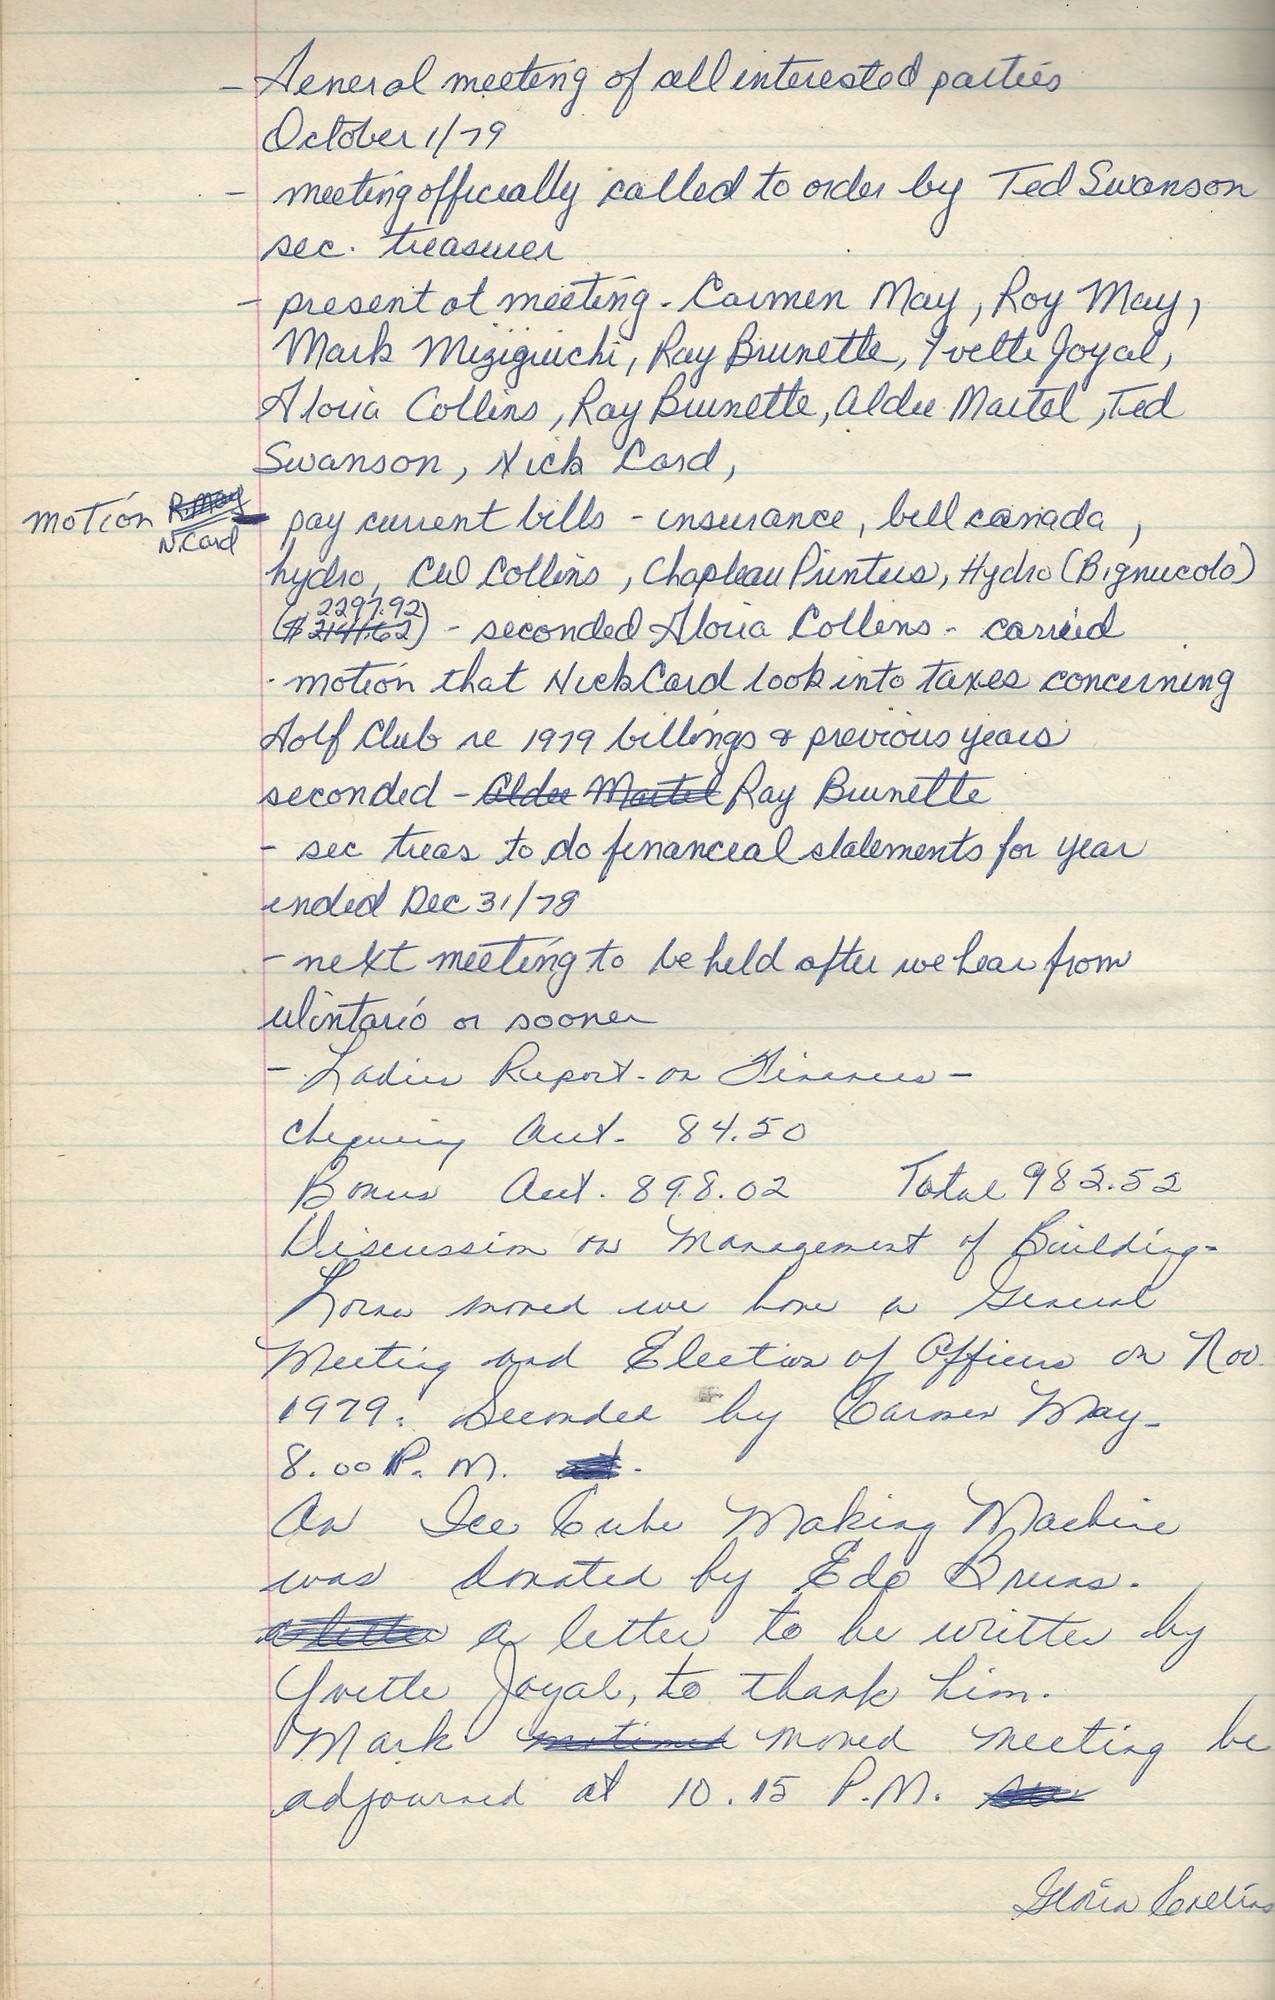 - General meeting of all interested parties
October 1/79
- meeting officially called to order by Ted Swanson
sec. treasurer
- present at meeting - Carmen May, Roy May,
Mark Miziguichi, Ray Brunette, Yvette Joyal,
Gloria Collins, Ray Brunette, Aldee Martel, Ted
Swanson, Nick Card,
motion R. May N. Card - pay current bills - insurance, bell canada,
hydro, CW Collins, Chapleau Printers, Hydro (Bignucolo)
2297.92
($ 2141.62) - seconded Gloria Collins - carried
- motion that Nick Card look into taxes concerning
Golf Club re 1979 billings & previous years
seconded - Aldee Martel Ray Brunette
- sec treas to do financial statements for year
ended Dec 31/78
- next meeting to be held after we hear from
Wintario or sooner
- Ladies Report - on Finances -
Chequing Acct. 84.50
Bonus Acct. 898.02 Total 982.52
Discussion on Management of Building -
Lorne moved we have a General
Meeting and Election of Officers on Nov.
1979. Seconded by Carmen May -
8.00 P.M.
An Ice Cube Making Machine
was donated by Edo Bruns.
a letter a letter to be written by
Yvette Joyal, to thank him.
Mark motioned moved meeting be
adjourned at 10.15 P.M.
Gloria Collins